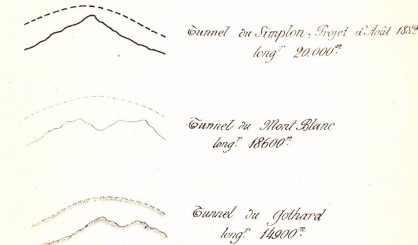 Tunnel du Simplon, Projet d'Août 1882
long.r 20.000m
Tunnel du Mont Blanc
long.r 18600m
Tunnel du Gothard
long.r 14900m